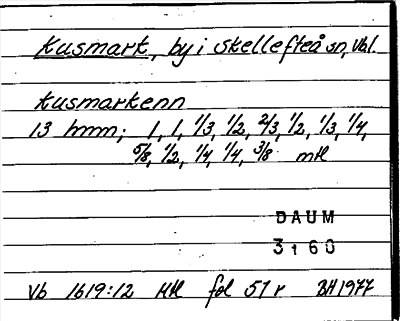 Kusmark, by i Skellefteå sn, Vbl.
Kusmarkenn
13 hmn; 1, 1, 1/3, 1/2, 2/3, 1/2, 1/3, 1/4,
5/8, 1/2, 1/4, 1/4, 3/8 mtl
DAUM
3160
Vb 1619:12 Mtl fol 51 r BH1977